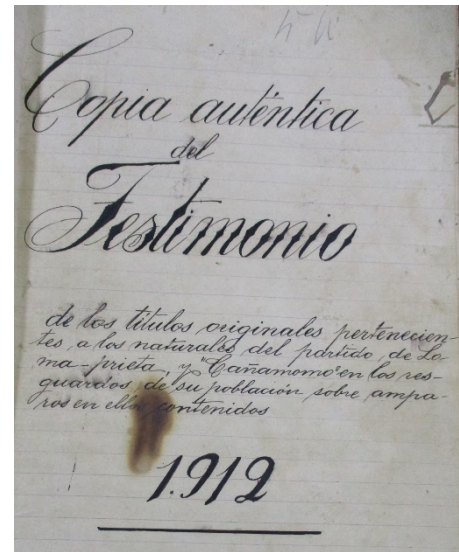 Copia auténtica
del
Testimonio
de los títulos originales pertenecien-
tes a los naturales del partido de Lo-
ma-prieta, y "Cañamomo" en los res-
guardos de su población sobre ampa-
ros en ellos contenidos
1.912